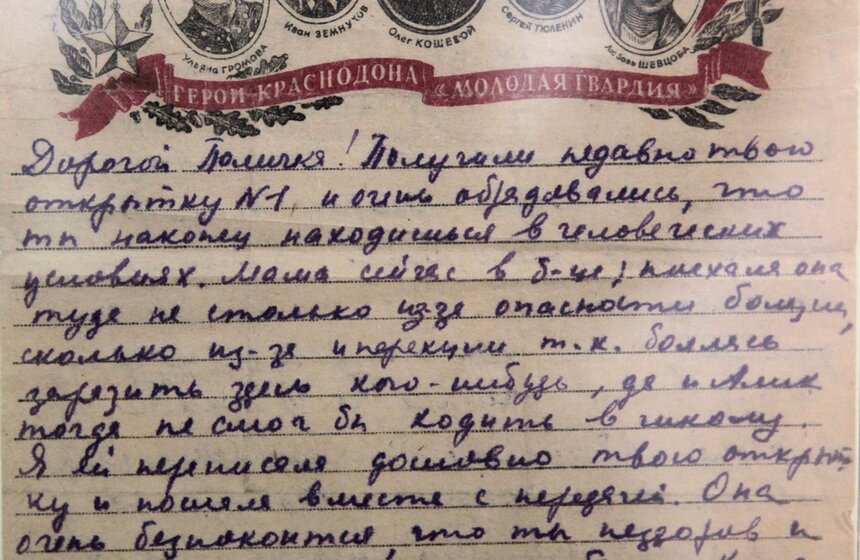 Ульяна ГРОМОВА
Иван ЗЕМНУХОВ
Олег КОШЕВОЙ
Сергей ТЮЛЕНИН
Любовь ШЕВЦОВА
ГЕРОИ КРАСНОДОНА «МОЛОДАЯ ГВАРДИЯ»
Дорогой Поличка! Получили недавно твою
открытку N1, и очень обрадовались, что
ты наконец находишься в человеческих
условиях. Мама сейчас в б-це; поехала она
туда не столько из-за опасности болезни,
сколько из-за инфекции т.к. боялась
заразить здесь кого-нибудь, да и Алик
тогда не смог бы ходить в школу.
Я ей переписала дословно твою открыт
ку и послала вместе с передачей. Она
очень безпокоится, что ты нездоров и